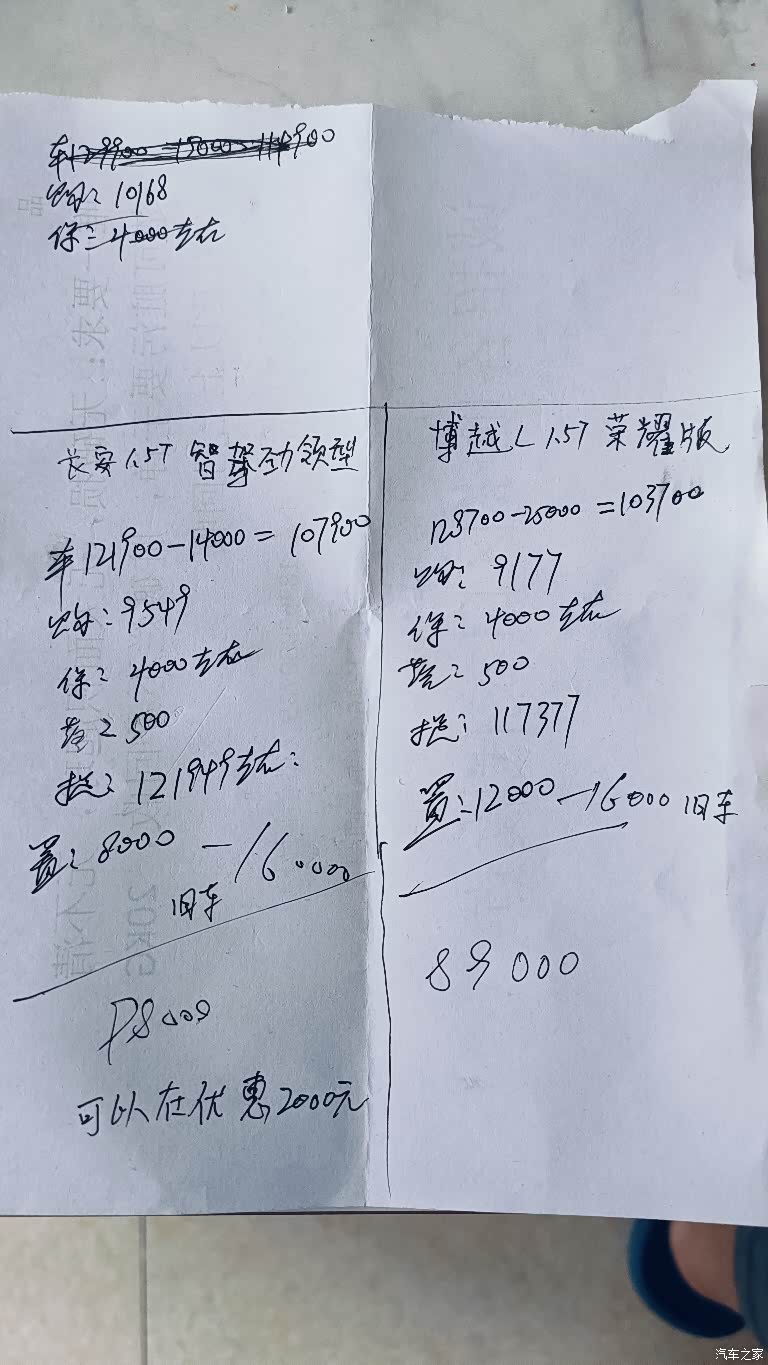 车129900-15000=114900
购：10168
保：4000左右
长安1.5T 智驾劲领型
车121900-14000=107900
购：9549
保：4000左右
杂：500
总：121949左右：
置：8000-16000
旧车
98000
可以在优惠2000元
博越L 1.5T 荣耀版
128700-25000=103700
购：9177
保：4000左右
杂：500
总：117377
置：12000-16000旧车
89000
20KG
汽车之家